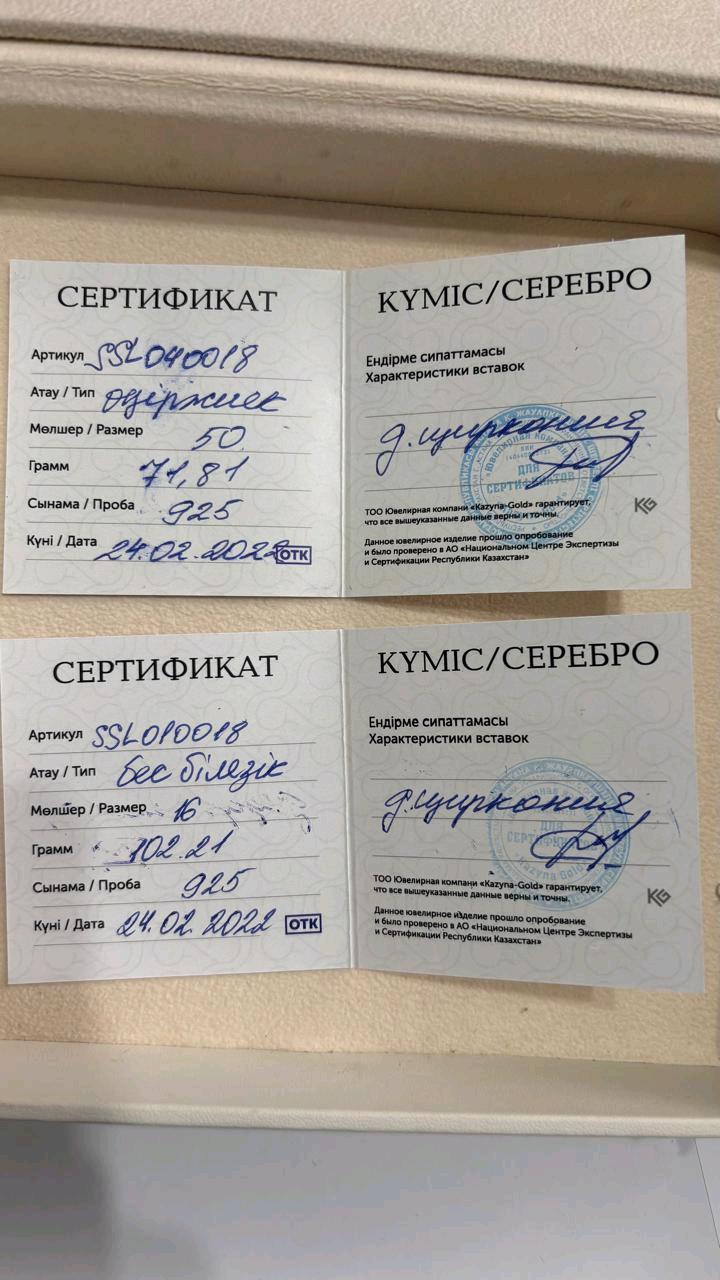 СЕРТИФИКАТ
Артикул SSL040018
Атау / Тип өңіржиек
Мөлшер / Размер 50
Грамм 71,81
Сынама / Проба 925
Күні / Дата 24.02.2022 ОТК
КҮМІС/СЕРЕБРО
Ендірме сипаттамасы
Характеристики вставок
д.цирконий
ДЛЯ
СЕРТИФИКАТОВ
ТОО Ювелирная компани «Kazyna-Gold» гарантирует,
что все вышеуказанные данные верны и точны.
KG
Данное ювелирное изделие прошло опробование
и было проверено в АО «Национальном Центре Экспертизы
и Сертификации Республики Казахстан»
СЕРТИФИКАТ
Артикул SSL010018
Атау / Тип бес білезік
Мөлшер / Размер 16
Грамм 102.21
Сынама / Проба 925
Күні / Дата 24.02.2022 ОТК
КҮМІС/СЕРЕБРО
Ендірме сипаттамасы
Характеристики вставок
д.цирконий
ДЛЯ
Kazyna Gold
ТОО Ювелирная компани «Kazyna-Gold» гарантирует,
что все вышеуказанные данные верны и точны.
KG
Данное ювелирное изделие прошло опробование
и было проверено в АО «Национальном Центре Экспертизы
и Сертификации Республики Казахстан»